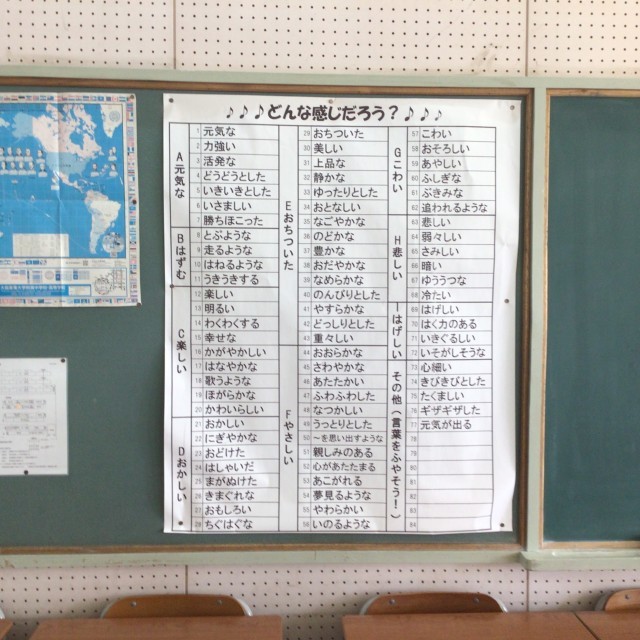 ♪♪♪どんな感じだろう？♪♪♪
A元気な
1 元気な
2 力強い
3 活発な
4 どうどうとした
5 いきいきとした
6 いさましい
7 勝ちほこった
Bはずむ
8 とぶような
9 走るような
10 はねるような
11 うきうきする
C楽しい
12 楽しい
13 明るい
14 わくわくする
15 幸せな
16 かがやかしい
17 はなやかな
18 歌うような
19 ほがらかな
20 かわいらしい
Dおかしい
21 おかしい
22 にぎやかな
23 おどけた
24 はしゃいだ
25 まがぬけた
26 きまぐれな
27 おもしろい
28 ちぐはぐな
Eおちついた
29 おちついた
30 美しい
31 上品な
32 静かな
33 ゆったりとした
34 おとなしい
35 なごやかな
36 のどかな
37 豊かな
38 おだやかな
39 なめらかな
40 のんびりとした
41 やすらかな
42 どっしりとした
43 重々しい
Fやさしい
44 おおらかな
45 さわやかな
46 あたたかい
47 ふわふわした
48 なつかしい
49 うっとりとした
50 ～を思い出すような
51 親しみのある
52 心があたたまる
53 あこがれる
54 夢見るような
55 やわらかい
56 いのるような
Gこわい
57 こわい
58 おそろしい
59 あやしい
60 ふしぎな
61 ぶきみな
62 追われるような
H悲しい
63 悲しい
64 弱々しい
65 さみしい
66 暗い
67 ゆううつな
68 冷たい
Iはげしい
69 はげしい
70 はく力のある
71 いきぐるしい
72 いそがしそうな
その他（言葉をふやそう！）
73 心細い
74 きびきびとした
75 たくましい
76 ギザギザした
77 元気が出る
78
79
80
81
82
83
84